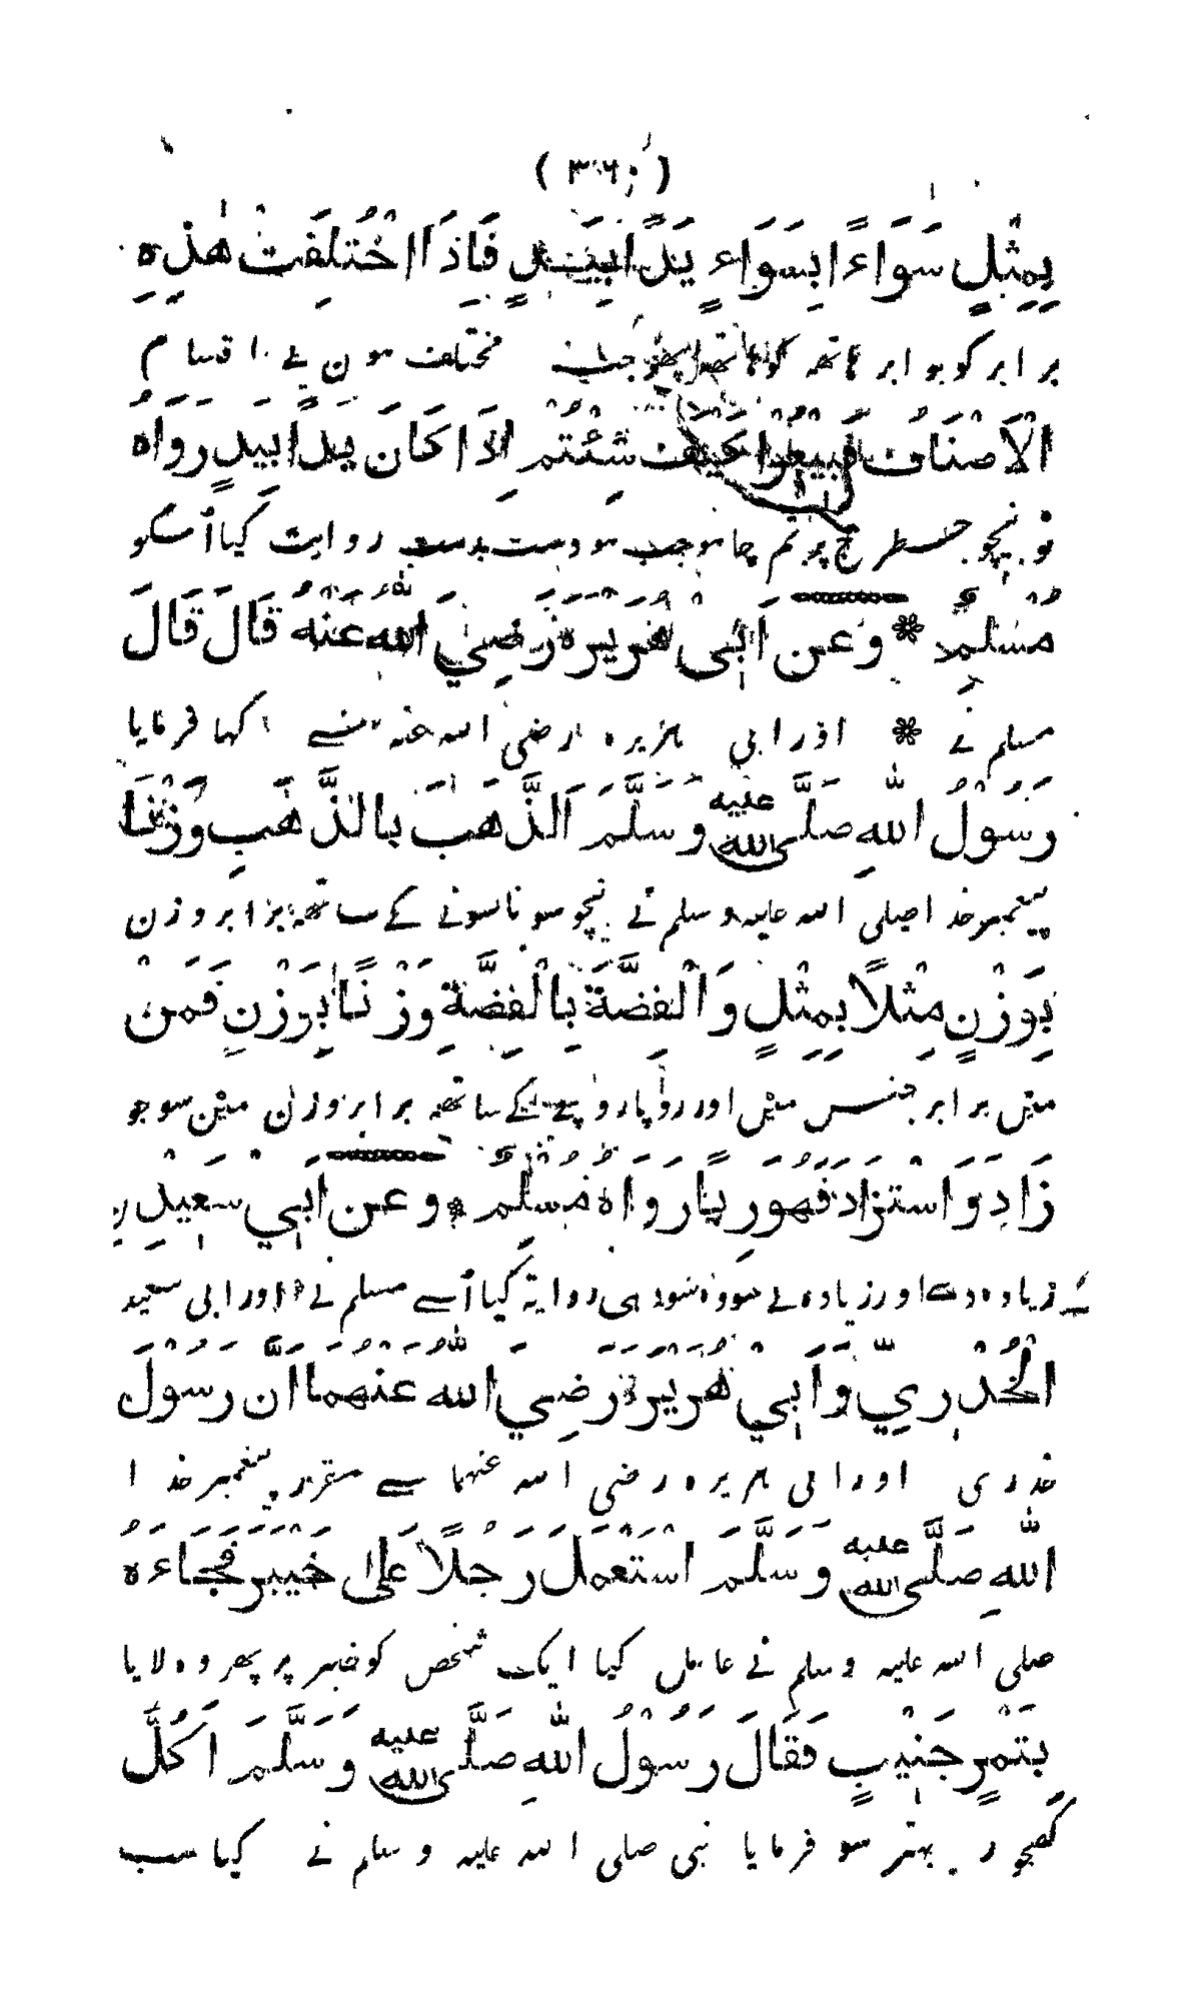 (٣٦٠)
بِمِثْلٍ سَوَاءً بِسَوَاءٍ يَدًا بِيَدٍ فَاِذَا اخْتَلَفَتْ هٰذِهِ
برابر کو برابر هاتهه کو مختلف هون یے اقسام
الْاَصْنَافُ فَبِيْعُوْا كَيْفَ شِئْتُمْ اِذَا كَانَ يَدًا بِيَدٍ رَوَاهُ
تو بیچو جسطرح پر تم چاهو جب هو دست بدست روایت کیا اُسکو
مُسْلِمٌ * وَعَنْ اَبِيْ هُرَيْرَةَ رَضِيَ اللّٰهُ عَنْهُ قَالَ قَالَ
مسلم نے * اور ابی هریره رضی الله عنه سے کہا فرمایا
رَسُوْلُ اللّٰهِ صَلَّى اللّٰهُ عَلَيْهِ وَسَلَّمَ اَلذَّهَبُ بِالذَّهَبِ وَزْنًا
پیغمبر خدا صلی الله علیه و سلم نے بیچو سونا سونے کے ساتهه برابر وزن
بِوَزْنٍ مِثْلًا بِمِثْلٍ وَالْفِضَّةُ بِالْفِضَّةِ وَزْنًا بِوَزْنٍ فَمَنْ
میں برابر جنس میں اور روپا روپے کے ساتهه برابر وزن میں سو جو
زَادَ وَاسْتَزَادَ فَهُوَ رِبًا رَوَاهُ مُسْلِمٌ * وَعَنْ اَبِيْ سَعِيْدٍ
زیاده دے اور زیاده لے سو وه سود هی روایة کیا اُسے مسلم نے * اور ابی سعید
الْخُدْرِيِّ وَاَبِيْ هُرَيْرَةَ رَضِيَ اللّٰهُ عَنْهُمَا اَنَّ رَسُوْلَ
خدری اور ابی هریره رضی الله عنهما سے مقرر پیغمبر خدا
اللّٰهِ صَلَّى اللّٰهُ عَلَيْهِ وَسَلَّمَ اسْتَعْمَلَ رَجُلًا عَلٰى خَيْبَرَ فَجَاءَهُ
صلی الله علیه و سلم نے عامل کیا ایک شخص کو خیبر پر پهر وه لایا
بِتَمْرٍ جَنِيْبٍ فَقَالَ رَسُوْلُ اللّٰهِ صَلَّى اللّٰهُ عَلَيْهِ وَسَلَّمَ اَكُلُّ
کھجور بهتر سو فرمایا نبی صلی الله علیه و سلم نے کیا سب